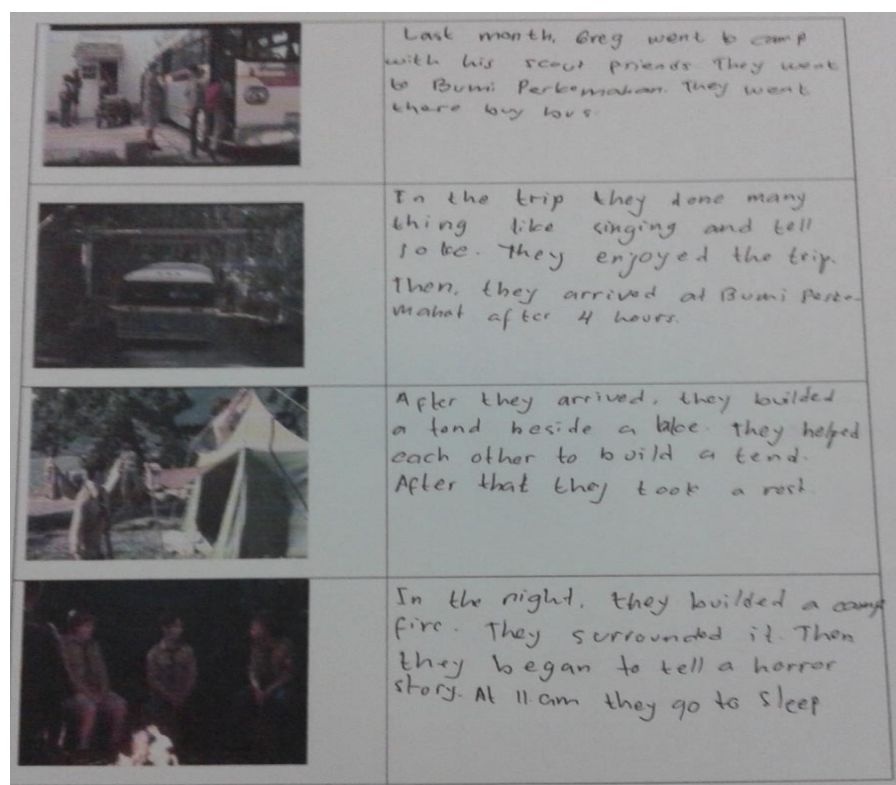 Last month, Greg went to camp
with his scout friends. They went
to Bumi Perkemahan. They went
there buy bus.
In the trip they done many
thing like singing and tell
joke. They enjoyed the trip.
Then, they arrived at Bumi Perke-
mahat after 4 hours.
After they arrived, they builded
a tend beside a lake. They helped
each other to build a tend.
After that they took a rest
In the night, they builded a camp
fire. They surrounded it. Then
they began to tell a horror
story. At 11 am they go to sleep